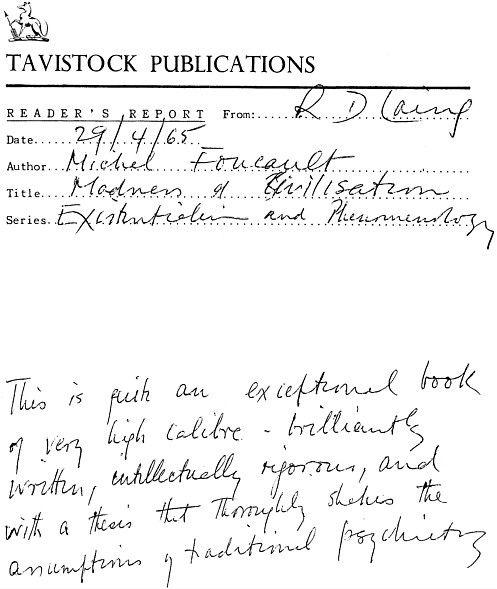 TAVISTOCK PUBLICATIONS
READER'S REPORT From: R D Laing
Date 29/4/65
Author Michel Foucault
Title Madness & Civilisation
Series Existentialism and Phenomenology
This is quite an exceptional book
of very high calibre - brilliantly
written, intellectually rigorous, and
with a thesis that thoroughly shakes the
assumptions of traditional psychiatry